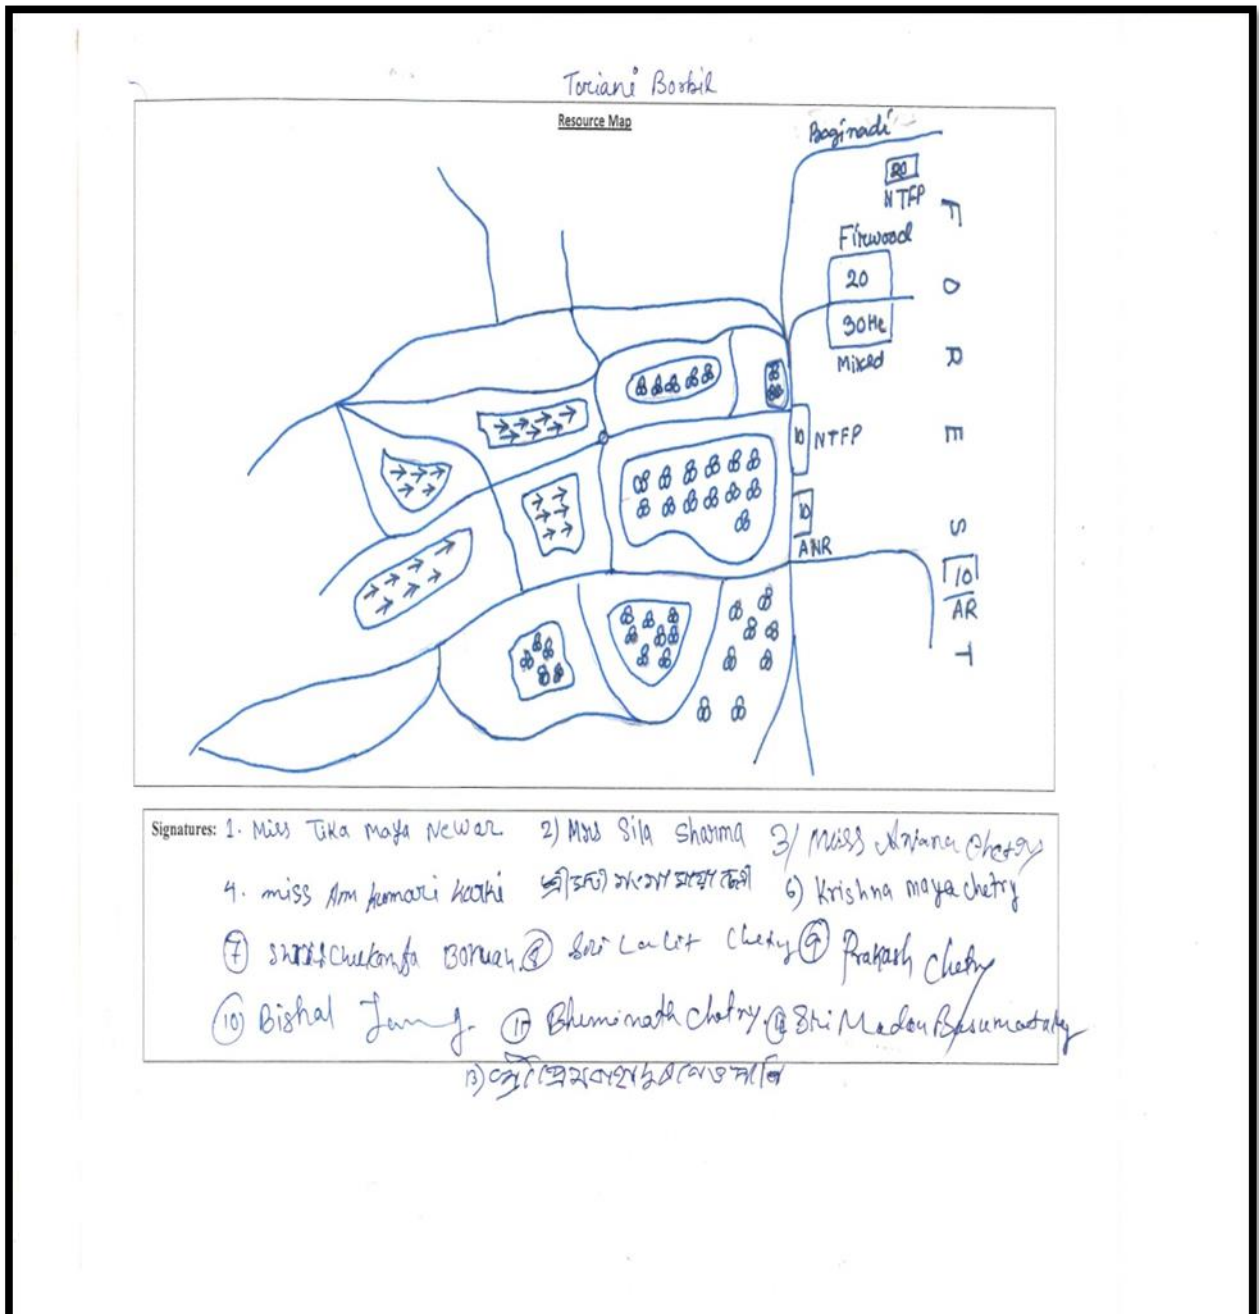 Toriani Borbil
Resource Map
Boginadi
20
NTFP
Firwood
20
30He
Mixed
10 NTFP
10
ANR
10
AR
F O R E S T
Signatures: 1. Miss Tika Maya Newar 2) Mrs Sila Sharma 3/ Miss Anjana Chetry
4. miss Am kumari karki 6) Krishna maya chetry
7 Boruah. 8 Sri Lalit Chetry 9 Prakash Chetry
10 Bishal 11 Bhuminath Chetry. 12 Sri Madan Basumatary
13)